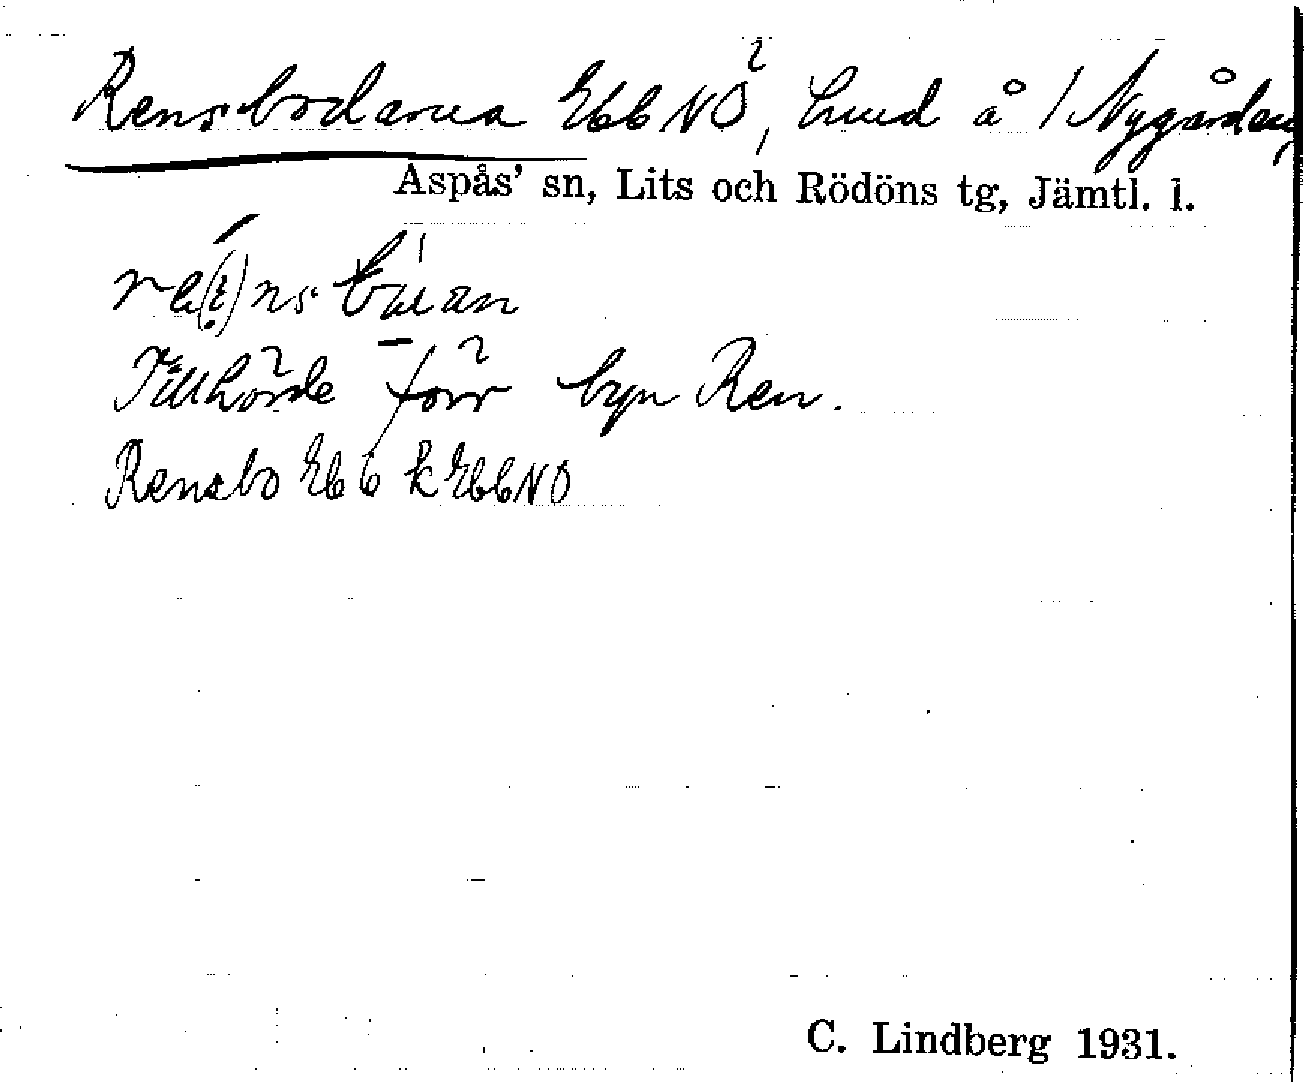 Rensbodarna Ebb NÖ, hmd å / Nygården,
Aspås' sn, Lits och Rödöns tg, Jämtl. l.
Tillhörde förr byn Ren.
Rensbo Eb b k Ebb NO
C. Lindberg 1931.